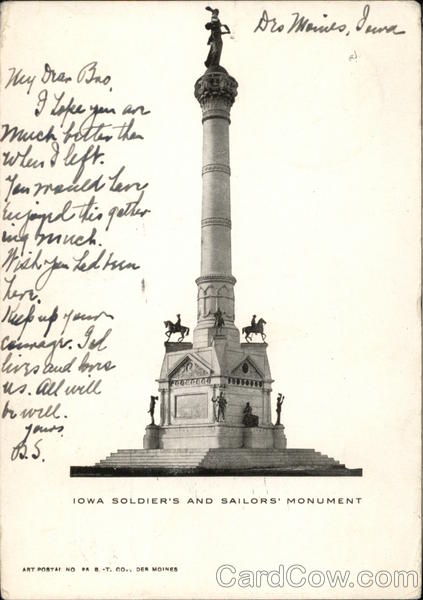 Des Moines, Iowa
My Dear Bro,
I hope you are
much better then
when I left.
You would have
enjoyed this gather
ing much.
Wish you had been
here.
Keep up your
courage. God
lives and loves
us. All will
be well.
yours
B.S.
IOWA SOLDIER'S AND SAILORS' MONUMENT
ART POSTAL NO B.-T. CO., DES MOINES
CardCow.com